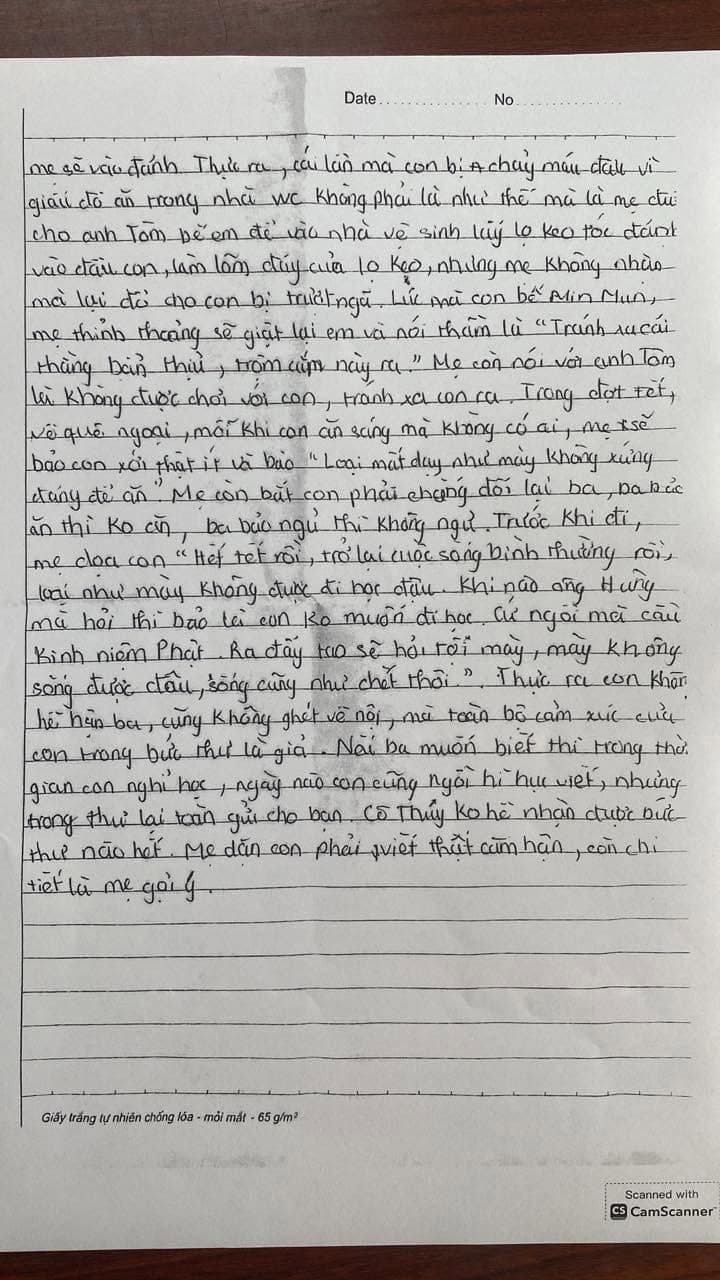 Date .............. No ................
mẹ sẽ vào đánh Thực ra, cái lần mà con bị chảy máu đầu vì
giấu đồ ăn trong nhà wc không phải là như thế mà là mẹ đưa
cho anh Tôm bế em để vào nhà vệ sinh lấy lọ keo tóc đánh
vào đầu con, làm lõm đáy của lọ keo, nhưng mẹ không nhận
mà lại đổ cho con bị trượt ngã. Lúc mà con bế Min Mun,
mẹ thỉnh thoảng sẽ giật lại em và nói thầm là "Tránh xa cái
thằng bẩn thỉu, trộm cắp này ra." Mẹ còn nói với anh Tôm
là không được chơi với con, tránh xa con ra. Trong đợt tết,
về quê ngoại, mỗi khi con ăn sáng mà không có ai, mẹ sẽ
bảo con xới thật ít và bảo "Loại mất dạy như mày không xứng
đáng để ăn". Mẹ còn bắt con phải chống đối lại ba, ba bảo
ăn thì ko ăn, ba bảo ngủ thì không ngủ. Trước khi đi,
mẹ dọa con "Hết tết rồi, trở lại cuộc sống bình thường rồi,
loại như mày không được đi học đâu. Khi nào ông Hưng
mà hỏi thì bảo là con ko muốn đi học. Cứ ngồi mà cầu
kinh niệm Phật. Ra đấy tao sẽ hỏi tội mày, mày không
sống được đâu, sống cũng như chết thôi". Thực ra con không
hề hận ba, cũng không ghét về nội, mà toàn bộ cảm xúc của
con trong bức thư là giả. Nài ba muốn biết thì trong thời
gian con nghỉ học, ngày nào con cũng ngồi hì hục viết, nhưng
trong thư lại toàn gửi cho bạn. Cô Thúy ko hề nhận được bức
thư nào hết. Mẹ dặn con phải viết thật căm hận, còn chi
tiết là mẹ gợi ý.
Giấy trắng tự nhiên chống lóa - mỏi mắt - 65 g/m²
Scanned with
CS CamScanner